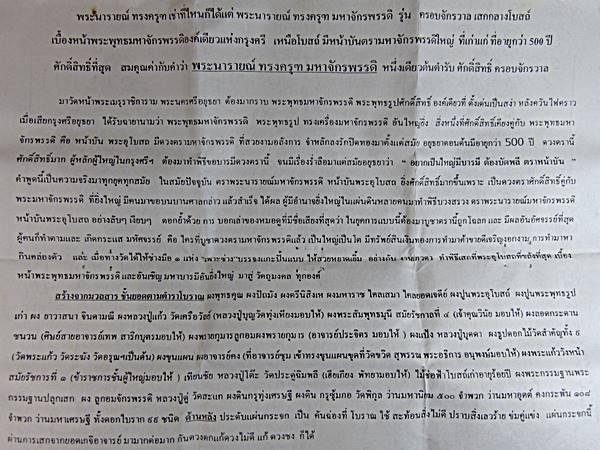 พระนารายณ์ ทรงครุฑ เช่าที่ไหนก็ได้แต่ พระนารายณ์ ทรงครุฑ มหาจักรพรรดิ รุ่น ครอบจักรวาล เสกกลางโบสถ์
เบื้องหน้าพระพุทธมหาจักรพรรดิองค์เดียวแห่งกรุงศรี เหนือโบสถ์ มีหน้าบันตรามหาจักรพรรดิใหญ่ ที่เก่าแก่ ที่อายุกว่า 500 ปี
ศักดิ์สิทธิ์ที่สุด สมคุณค่ากับคำว่า พระนารายณ์ ทรงครุฑ มหาจักรพรรดิ หนึ่งเดียวต้นตำรับ ศักดิ์สิทธิ์ ครอบจักรวาล
มาวัดหน้าพระเมรุราชิการาม พระนครศรีอยุธยา ต้องมากราบ พระพุทธมหาจักรพรรดิ พระพุทธรูปศักดิ์สิทธิ์ องค์เดียวที่ ตั้งเด่นเป็นสง่า หลังควันไฟคราว
เมื่อเสียกรุงศรีอยุธยา ได้รับฉายานามว่า พระพุทธมหาจักรพรรดิ พระพุทธรูป ทรงเครื่องมหาจักรพรรดิ อันใหญ่ยิ่ง สิ่งหนึ่งที่ศักดิ์สิทธิ์เคียงคู่กับ พระพุทธมหา
จักรพรรดิ คือ หน้าบัน พระอุโบสถ มีดวงตรามหาจักรพรรดิ ที่สวยงามอลังการ จำหลักลงรักปิดทองมาตั้งแต่สมัย อยุธยาตอนต้นมีอายุกว่า 500 ปี ดวงตรานี้
ศักดิ์สิทธิ์มาก ผู้หลักผู้ใหญ่ในกรุงศรีฯ ต้องมาทำพิธีขอบารมีดวงตรานี้ จนมีเรื่องร่ำลือมาแต่สมัยอยุธยาว่า " อยากเป็นใหญ่มีบารมี ต้องบัดพลี ตราหน้าบัน "
คำพูดนี้เป็นความจริงมาทุกยุคทุกสมัย ในสมัยปัจจุบัน ตราพระนารายณ์มหาจักรพรรดิ หน้าบันพระอุโบสถ ยิ่งศักดิ์สิทธิ์มากขึ้นเพราะ เป็นดวงตราศักดิ์สิทธิ์คู่กับ
พระมหาจักรพรรดิ ที่ยิ่งใหญ่ มีคนมาขอบนบานศาลกล่าว แล้วสำเร็จ ได้ผล ผู้มีอำนาจยิ่งใหญ่ในแผ่นดินหลายคนมาทำพิธีบวงสรวง ตราพระนารายณ์มหาจักรพรรดิ
หน้าบันพระอุโบสถ อย่างลับๆ เงียบๆ ตอกย้ำด้วย การ บอกเล่าของหมอดูที่มีชื่อเสียงที่สุดว่า ในยุคการแบบนี้ต้องมาบูชาตรานี้ถูกโฉลก และ มีผลอันอัศจรรย์ที่สุด
ผู้คนก็ทำตามและ เกิดกระแส มหัศจรรย์ คือ ใครที่บูชาดวงตรามหาจักรพรรดิแล้ว เป็นใหญ่เป็นโต มีทรัพย์สินเงินทองการทำมาค้าขายดีเจริญงอกงาม การทำมาหา
กินคล่องตัว และ เมื่อทางวัดได้ให้ช่างมือ ๑ แห่ง บรรจงแกะปั้นแบบ ให้สวยหยาดเยิ้ม ทำพิธีเสกที่พระอุโบสถที่ขลังที่สุด เบื้อง
หน้าพระพุทธมหาจักรพรรดิ และอันเชิญ มหาบารมีอันยิ่งใหญ่ มาสู่ วัตถุมงคล ทุกองค์
สร้างจากมวลสาร ชั้นยอดตามตำราโบราณ ผงพุทธคุณ ผงปัถมัง ผงตรีนิสิงเห ผงมหาราช ไคลเสมา ไคลยอดเจดีย์ ผงปูนพระอุโบสถ์ ผงปูนพระพุทธรูป
เก่า ผง ยาวาสนา จินดามณี ผงหลวงปู่แก้ว วัดเครือวัลย์ (หลวงปู่บุญวัดทุ่งเหียงมอบให้) ผงพระสมพุทธมุนี สมัยรัชกาลที่ ๔ (เจ้าคุณวินัย มอบให้) ผงลอดกระดาน
ชนวน (ศิษย์สายอาจารย์เทพ สาริกบุตรมอบให้) ผงพรายกุมารลูกอมผงพรายกุมาร (อาจารย์ประจิตร มอบให้ ) ผงแป้ง หลวงปู่บุดดา ผงธูปดอกไม้วัดสำคัญทั้ง ๙
(วัดพระแก้ว วัดระฆัง วัดอรุณฯเป็นต้น) ผงขุนแผน ผงอาจารย์คง (ที่อาจารย์ชุม เข้าทรงขุนแผนขุดที่วัดขวิด สุพรรณ พระอธิการ อนุพงษ์มอบให้) ผงพระแก้ววังหน้า
สมัยรัชกาลที่ ๑ (ข้าราชการชั้นผู้ใหญ่มอบให้ ) เทียนชัย หลวงปู่โต๊ะ วัดประดู่ฉิมพลี (เฮียเกียง พัทยามอบให้) ไม้ช่อฟ้าโบสถ์เก่าอายุร้อยปี ผงพระกรรมฐานพระ
กรรมฐานปลุกเสก ผง ลูกอมจักรพรรดิ หลวงปู่ดู่ วัดสะแก ผงดินกรุทุ่งเศรษฐี ผงดิน กรุซุ้มกอ วัดพิกุล ว่านมหานิยม ๕๐๐ จำพวก ว่านมหาอุตต์ คงกระพัน ๑๐๘
จำพวก ว่านมหาเศรษฐี ทั้งดอกใบราก ๙๙ ชนิด ด้านหลัง ประดับแผ่นกระจก เป็น คันฉ่องที่ โบราณ ใช้ สะท้อนสิ่งไม่ดี ปราบสิ่งเลวร้าย ข่มคู่แข่ง แผ่นกระจกนี้
ผ่านการเสกจากยอดเกจิอาจารย์ มามากต่อมาก กันดวงตกแก้ดวงไม่ดี แก้ ดวงชง ก็ได้